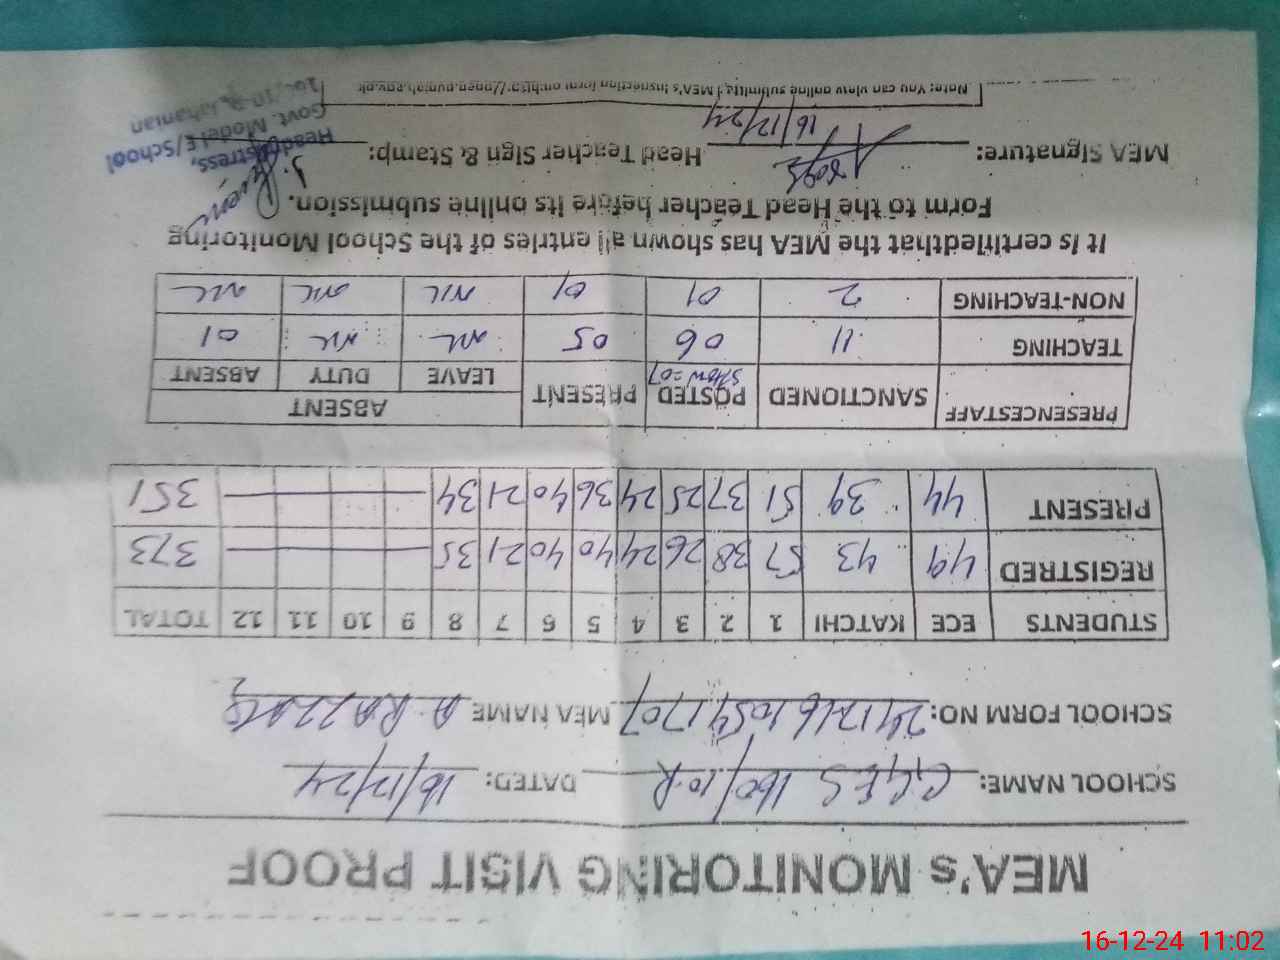 MEA's MONITORING VISIT PROOF
SCHOOL NAME: GGES 160/10-R DATED: 16/12/24
SCHOOL FORM NO: MEA NAME A. RAZZAQ
STUDENTS ECE KATCHI 1 2 3 4 5 6 7 8 9 10 11 12 TOTAL
REGISTRED 49 43 57 38 26 24 40 40 21 35 373
PRESENT 44 39 51 37 25 24 36 40 21 34 351
ABSENT
PRESENCESTAFF SANCTIONED POSTED PRESENT LEAVE DUTY ABSENT
STHOW=07
TEACHING 11 06 05 NIL NIL 01
NON-TEACHING 2 01 01 NIL NIL NIL
It is certifiedthat the MEA has shown all entries of the School Monitoring
Form to the Head Teacher before its online submission.
MEA Signature: Head Teacher Sign & Stamp:
16/12/24
Headmistress,
Govt. Model E/School
160/10-R, Jahanian
Note: You can view online submitted MEA's inspection form on:http://open.punjab.gov.pk
16-12-24 11:02